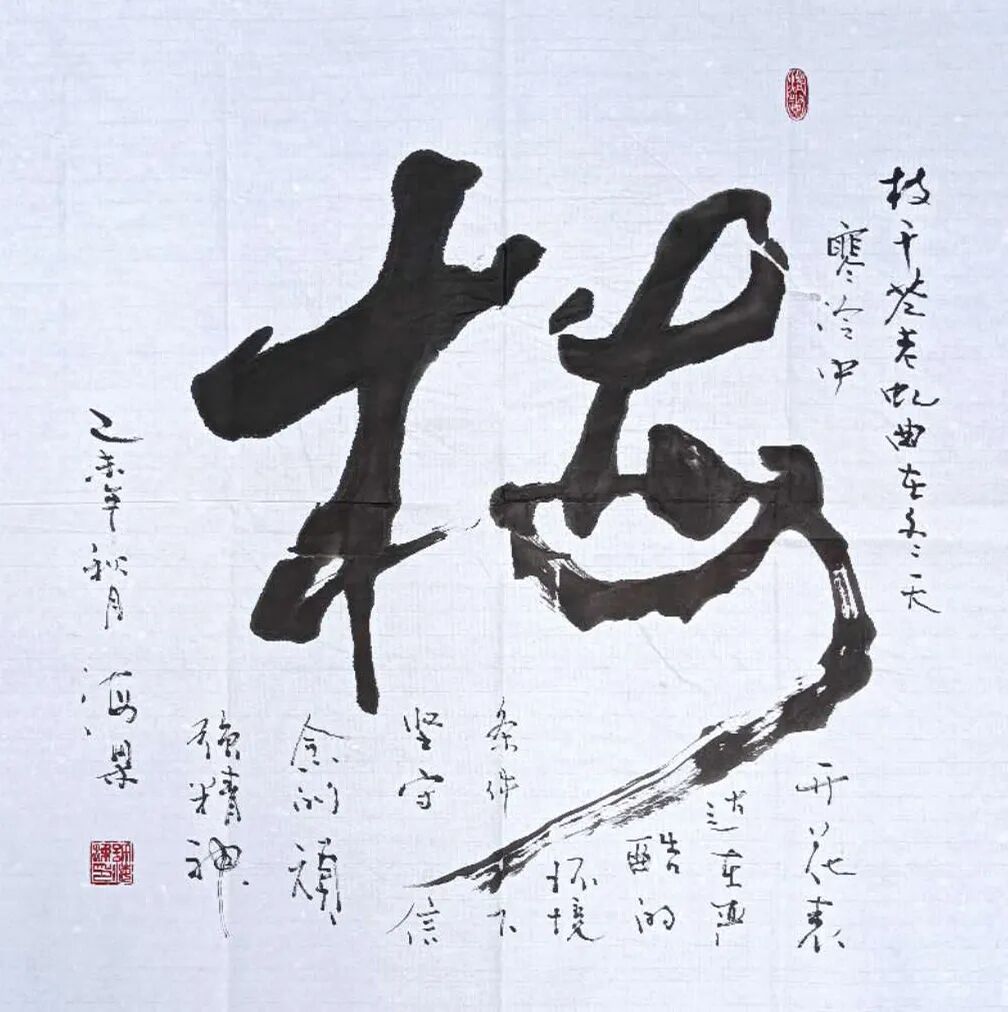 梅
枝干苍老虬曲在冬天
寒冷中
开花表
达在严
酷的
环境
条件下
坚守信
念的顽
强精神
乙未年秋月 海